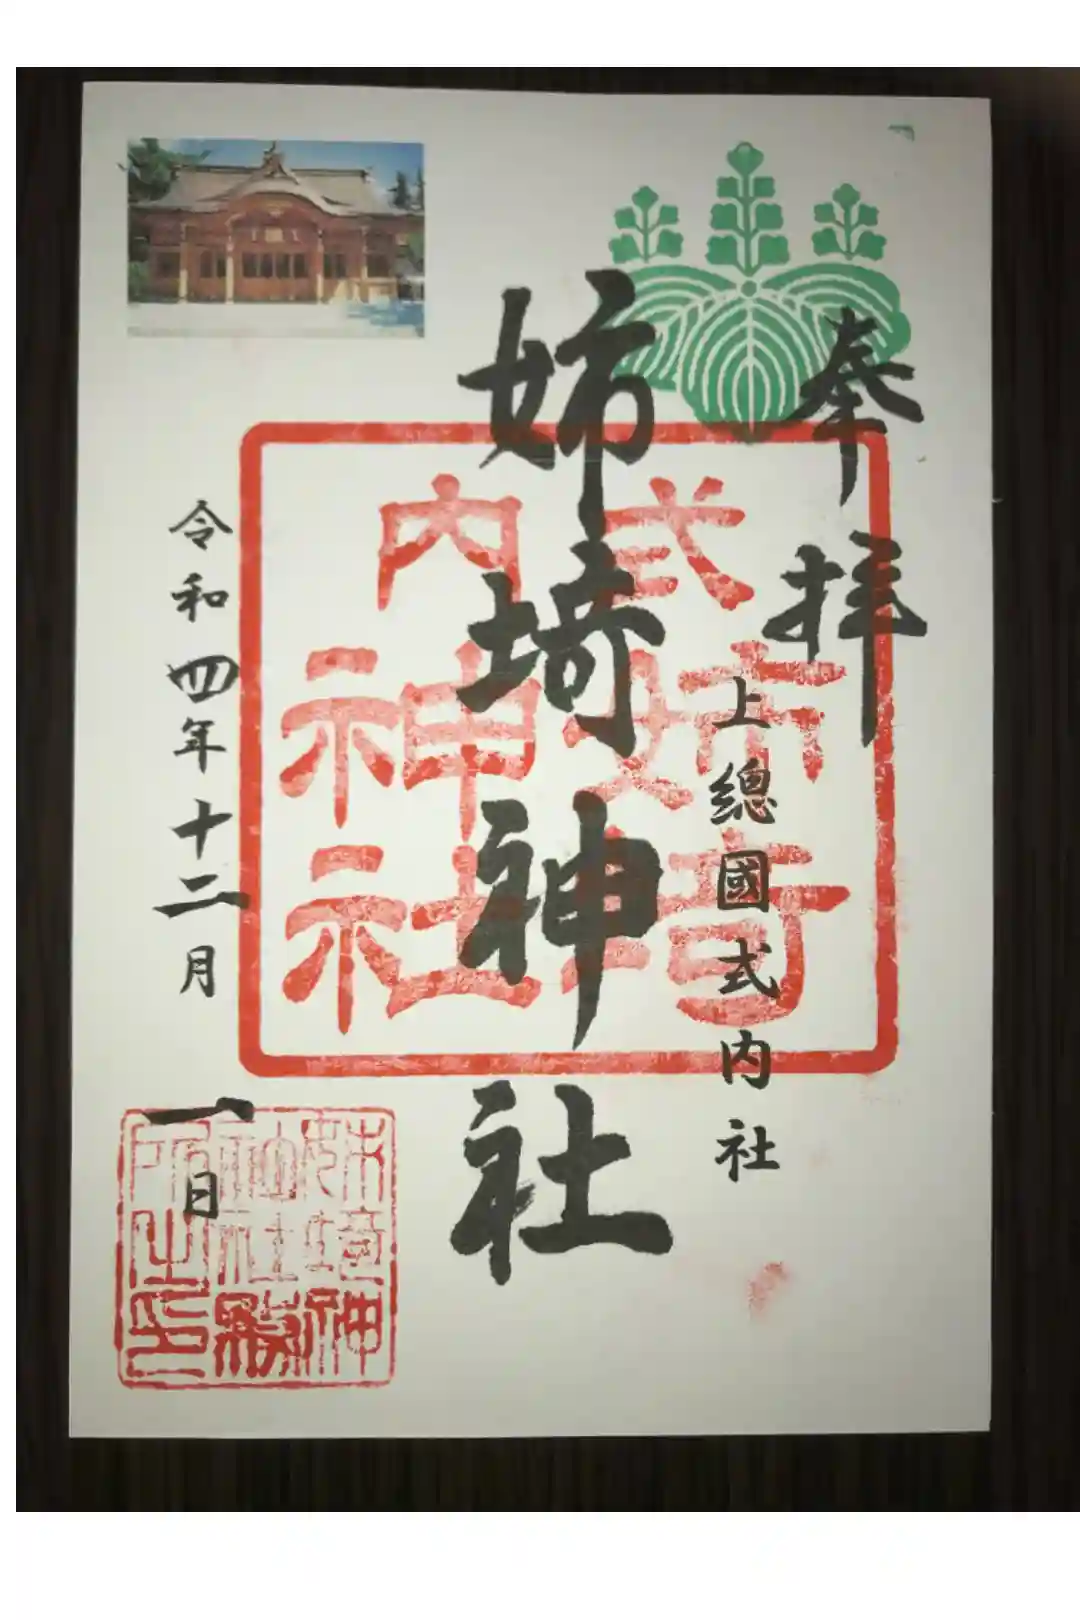 奉拝
上總國式内社
姉埼神社
式内
姉埼
神社
令和四年十二月一日
姉埼神
社社務
所之印